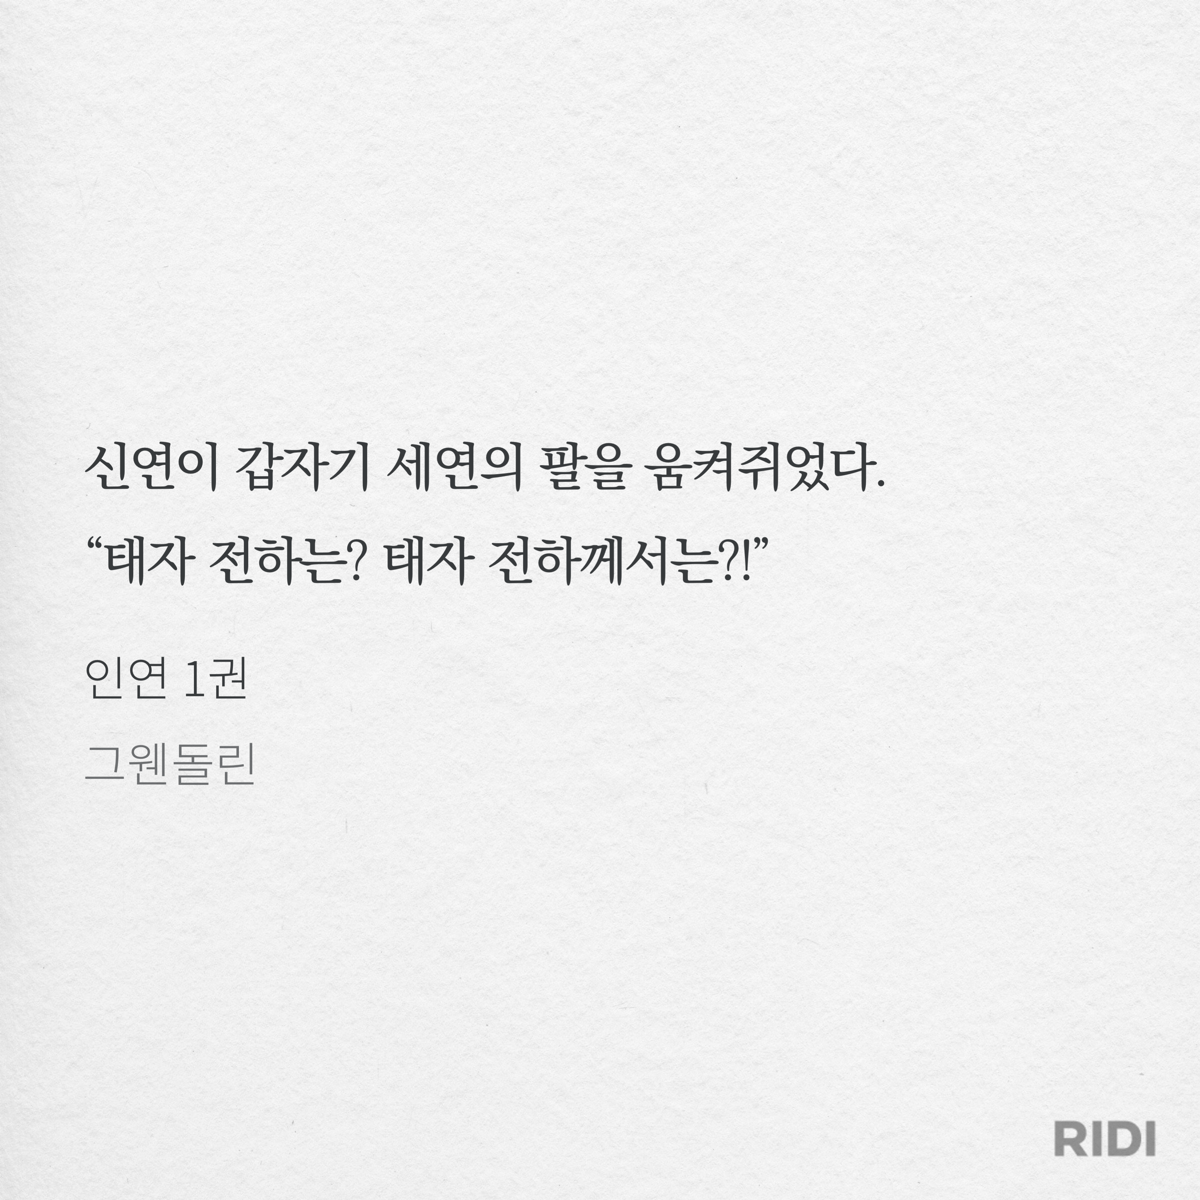 신연이 갑자기 세연의 팔을 움켜쥐었다.
“태자 전하는? 태자 전하께서는?!”
인연 1권
그웬돌린
RIDI